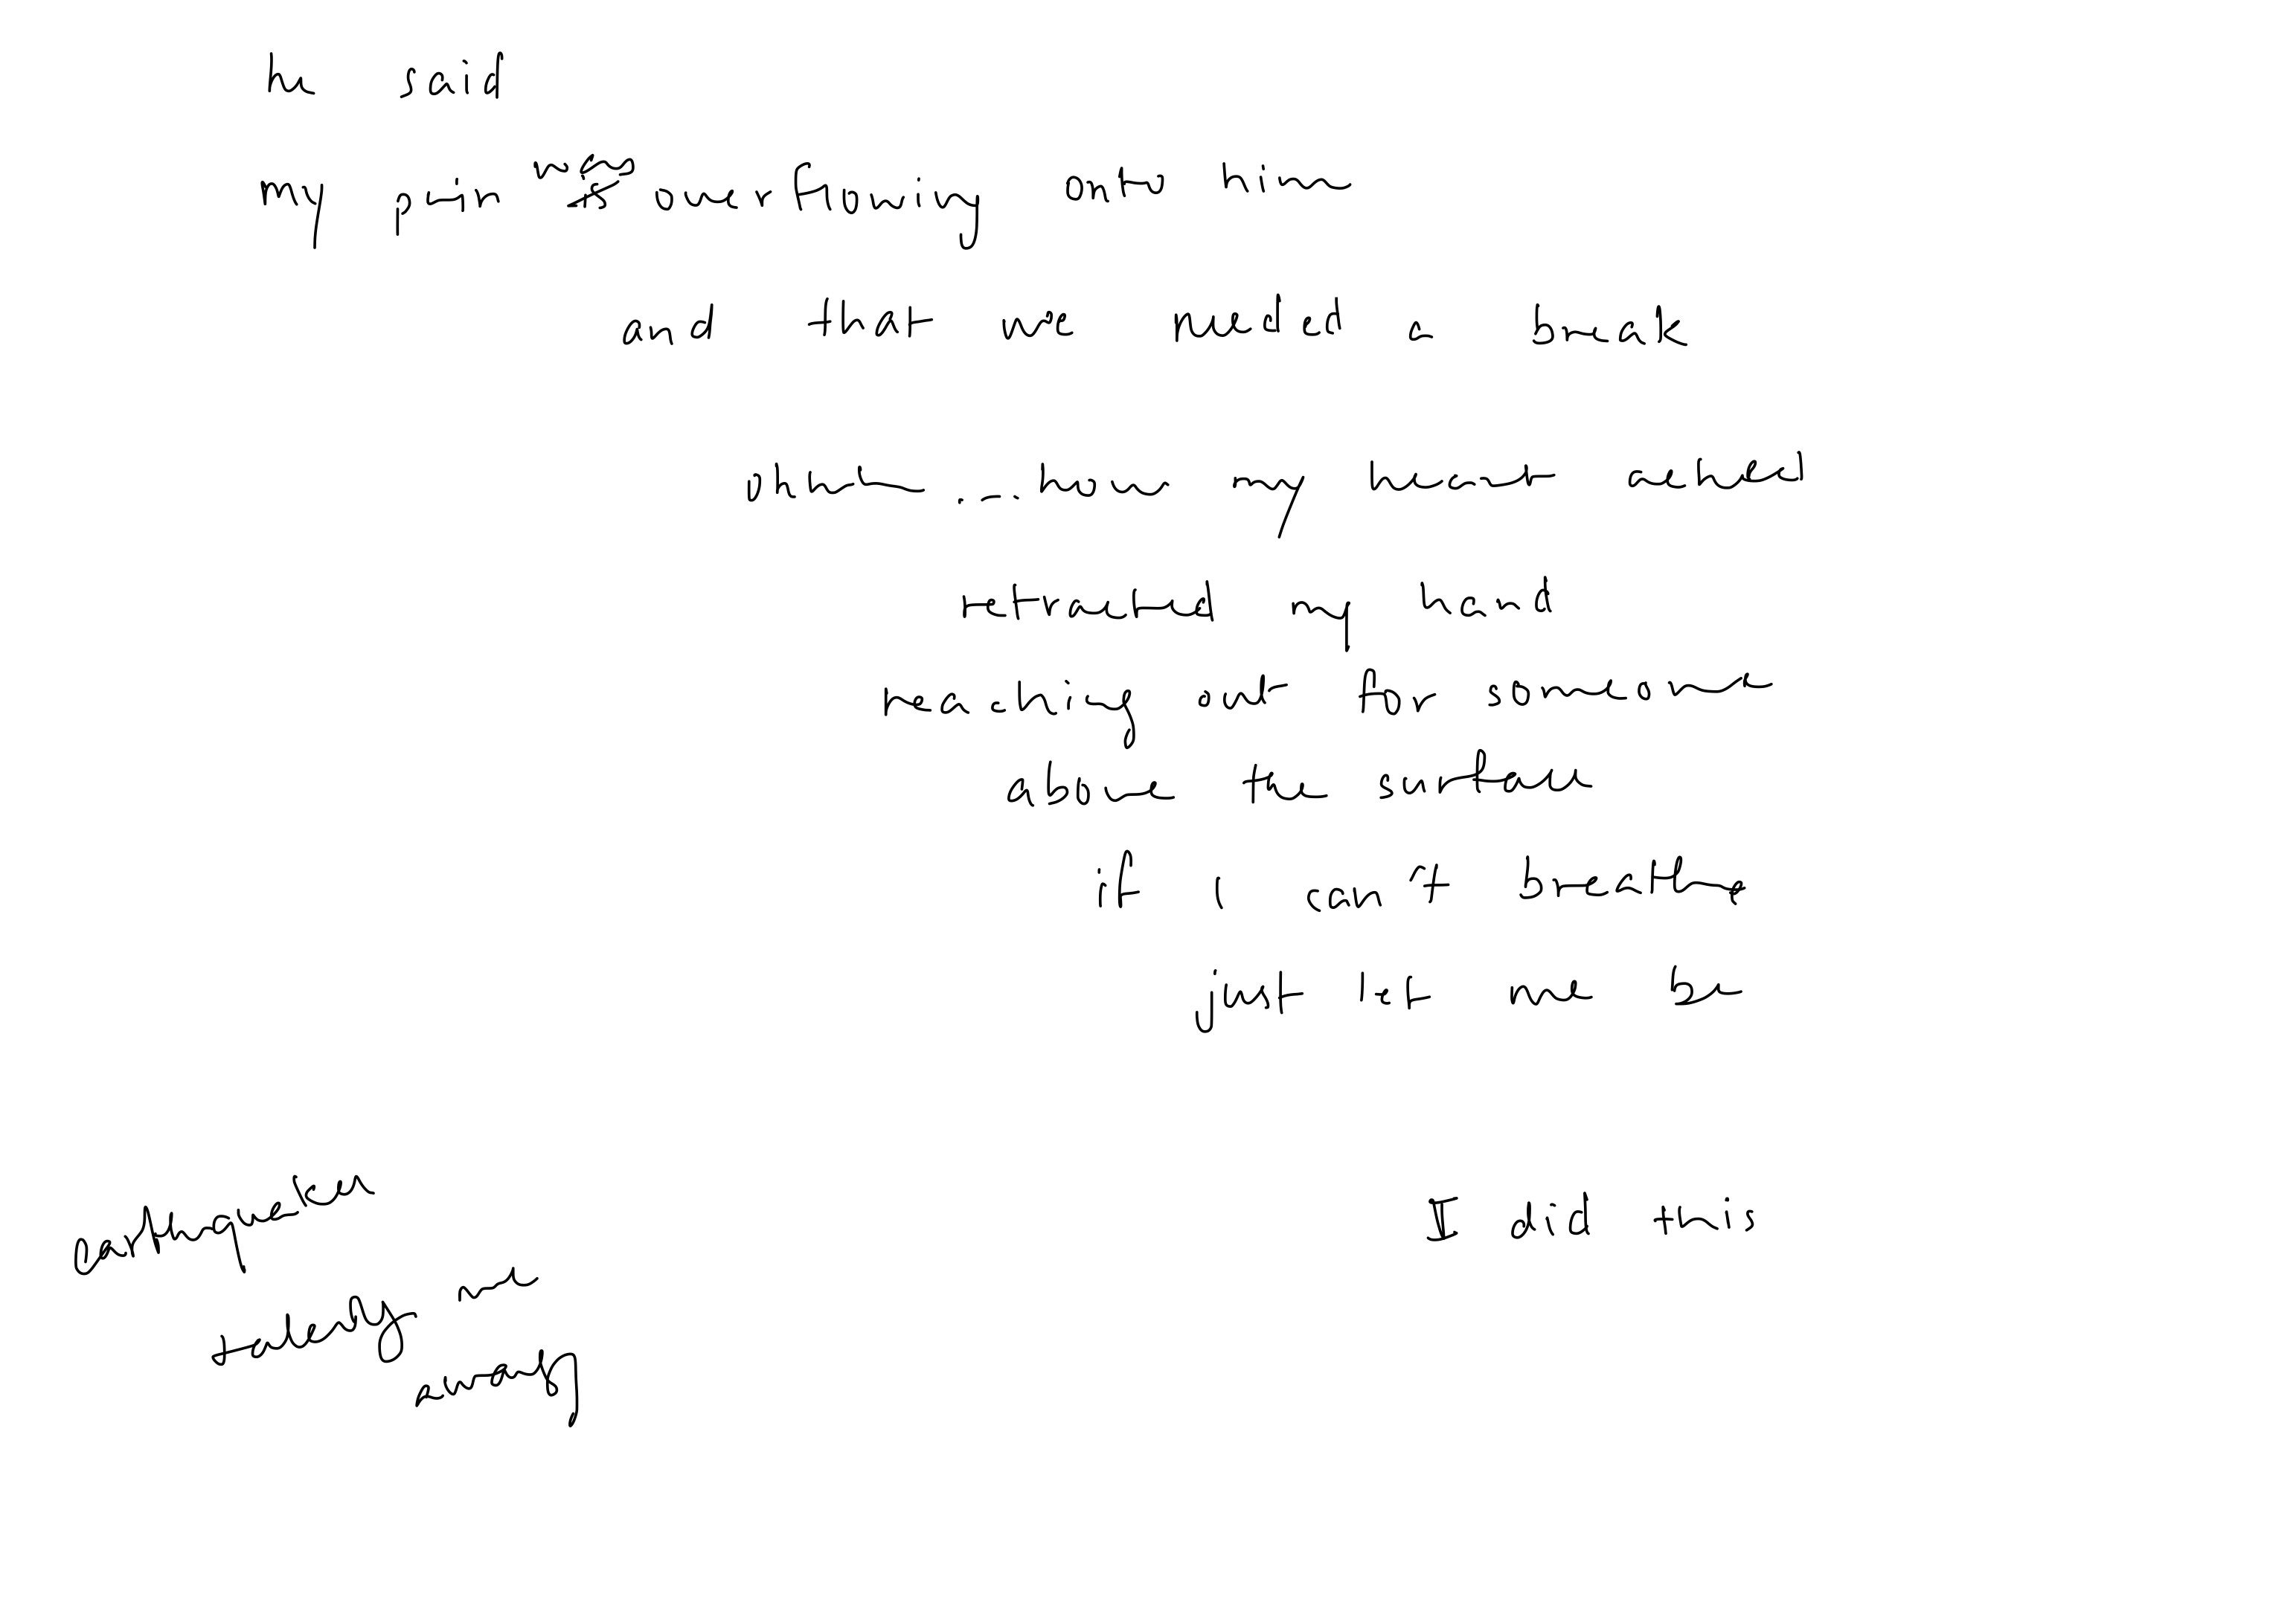 he said
my pain was overflowing onto him
and that we needed a break
ohhh ... how my heart ached
retracted my hand
reaching out for someone
above the surface
if i can't breathe
just let me be
I did this
earthquakes
taking me
away